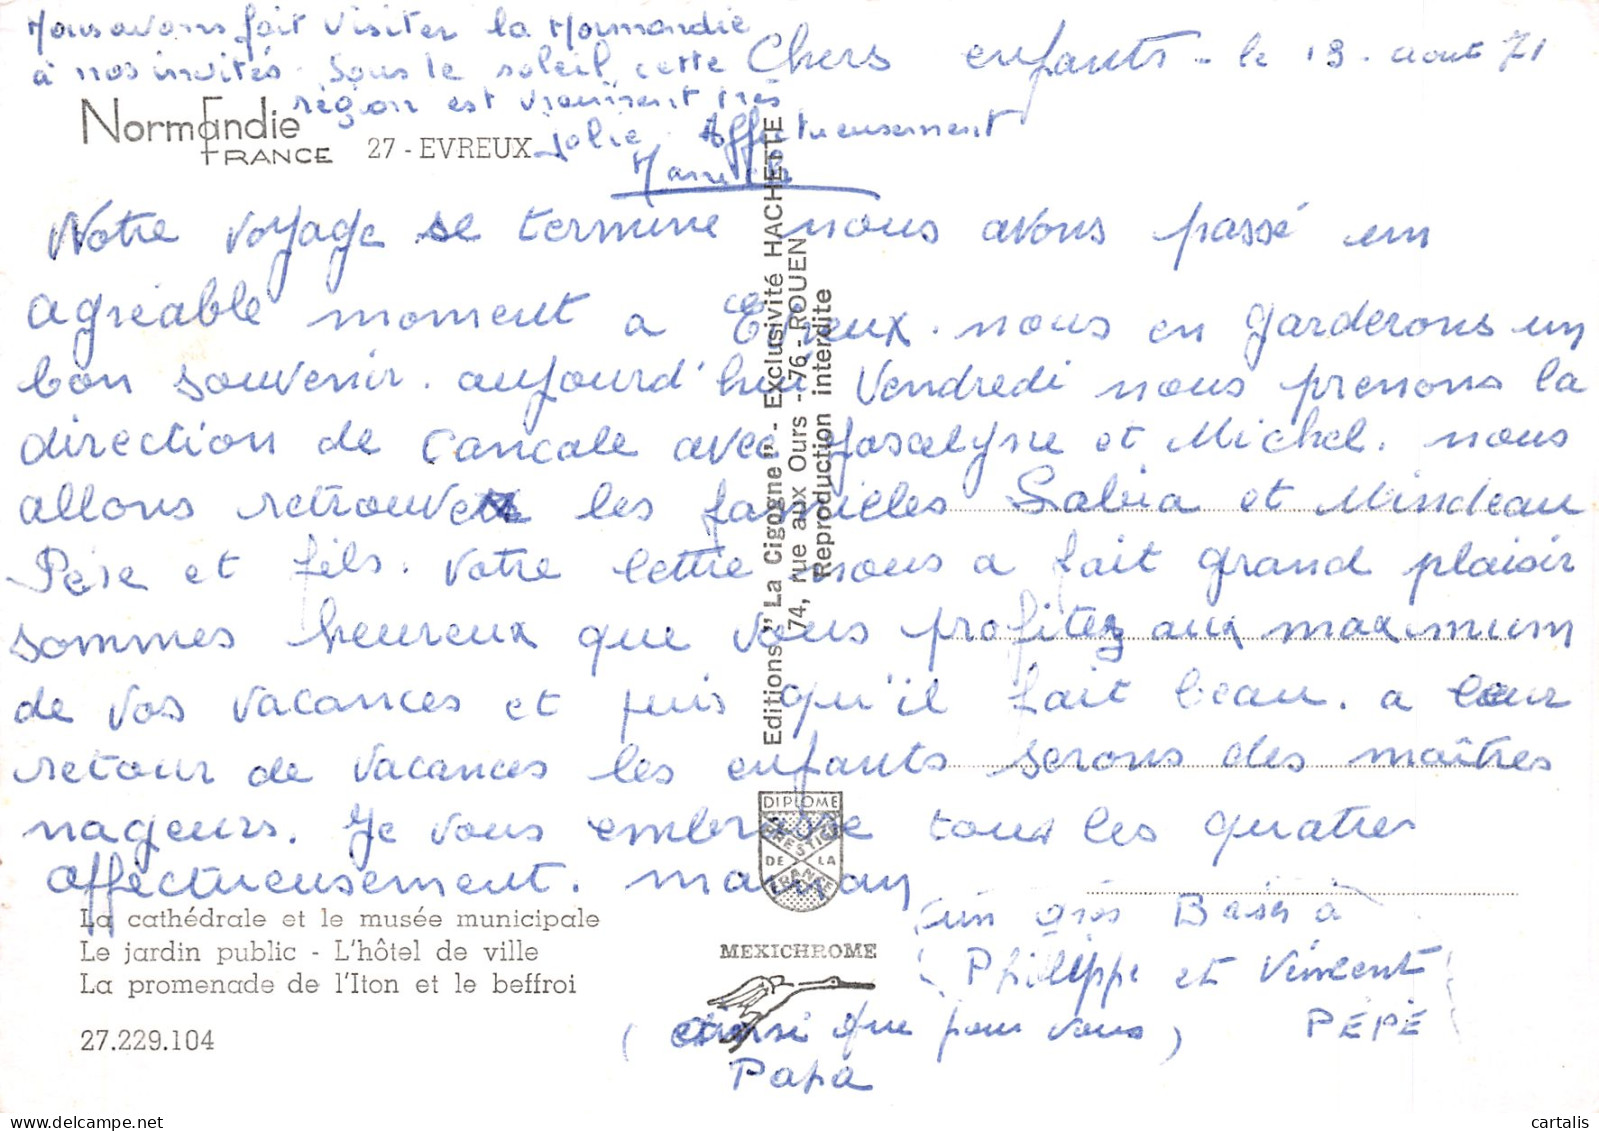 Nous avons fait visiter la Normandie
à nos invités. Sous le soleil cette
région est vraiment très
jolie. Affectueusement
Chers enfants - le 13. aout 71
Normandie
FRANCE
27 - EVREUX
Notre voyage se termine nous avons passé un
agréable moment a Evreux. nous en garderons un
bon souvenir. aujourd'hui Vendredi nous prenons la
direction de Cancale avec Joscelyne et Michel. nous
allons retrouver les familles Labia et Mindeau
Père et fils. Votre lettre nous a fait grand plaisir
sommes heureux que vous profitez aux maximum
de vos vacances et puis qu'il fait beau. a leur
retour de vacances les enfants serons des maîtres
nageurs. Je vous embrasse tous les quatres
affectueusement. maman
un gros Baiser à
Philippe et Vincent
PÉPÉ
( ainsi que pour vous )
Papa
La cathédrale et le musée municipale
Le jardin public - L'hôtel de ville
La promenade de l'Iton et le beffroi
27.229.104
Editions "La Cigogne" - Exclusivité HACHETTE
74, rue aux Ours - 76 - ROUEN
Reproduction interdite
DIPLOME
PRESTIGE
DE LA
FRANCE
MEXICHROME
cartalis